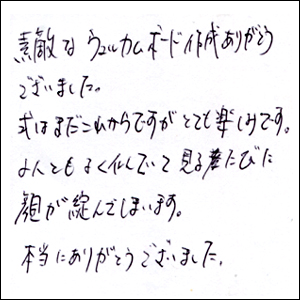 素敵な ウェルカムボード作成ありがとう
ございました。
式はまだこれからですがとても楽しみです。
2人ともよく似ていて見るたびに
顔が綻んでしまいます。
本当にありがとうございました。